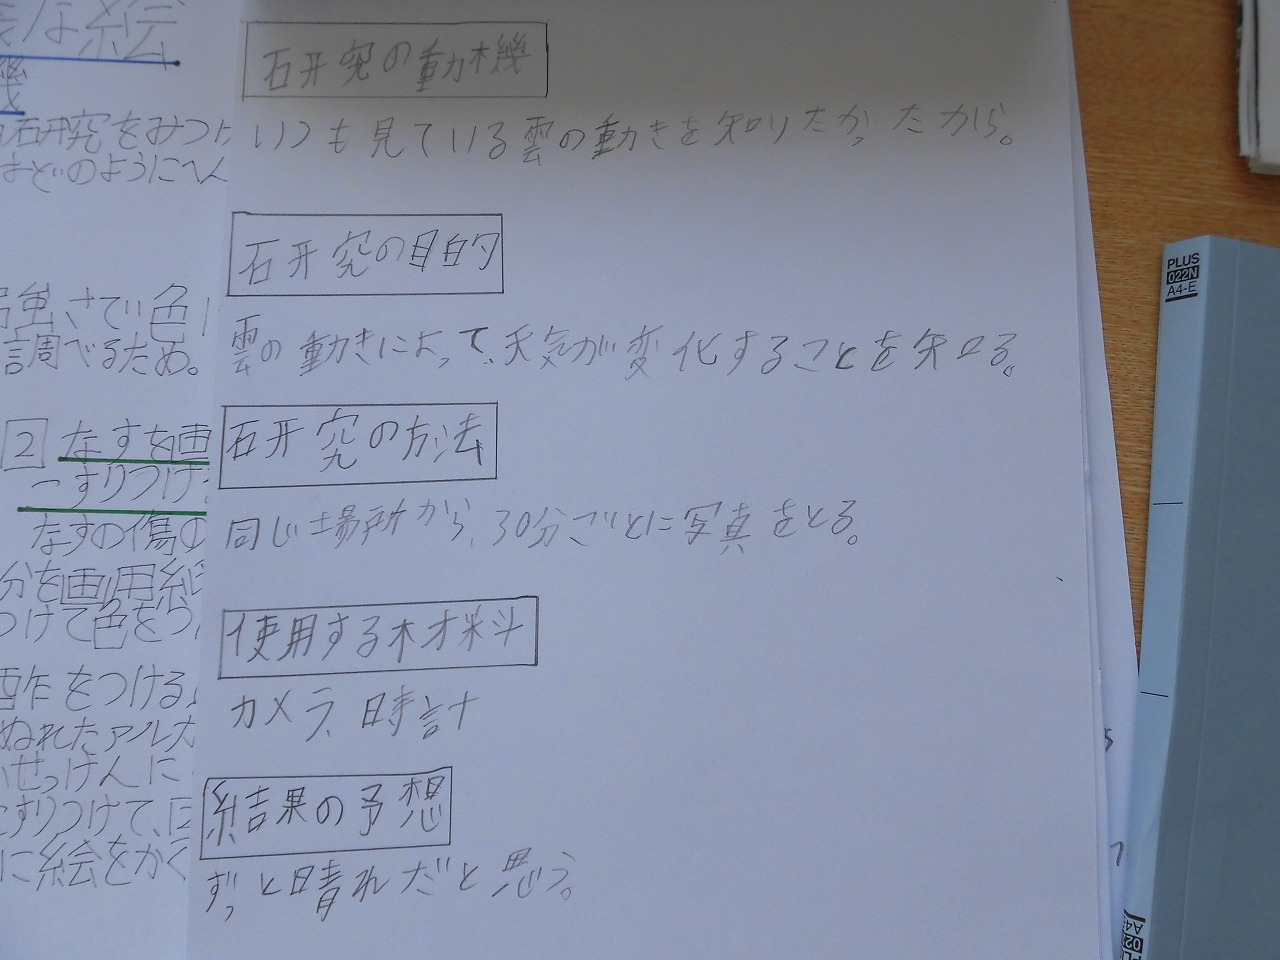 研究の動機
いつも見ている雲の動きを知りたかったから。
研究の目的
雲の動きによって、天気が変化することを知る。
研究の方法
同じ場所から、30分ごとに写真をとる。
使用する材料
カメラ、時計
結果の予想
ずっと晴れだと思う。
な絵
機
研究をみつけ
はどのようにへん
強さでい色
調べるため。
2 なすを画
すりつけ
なすの傷の
分を画用紙
つけて色をつ
酢をつける
ぬれたアルカ
せっけんに
すりつけて、
に絵をかく
PLUS
022N
A4-E